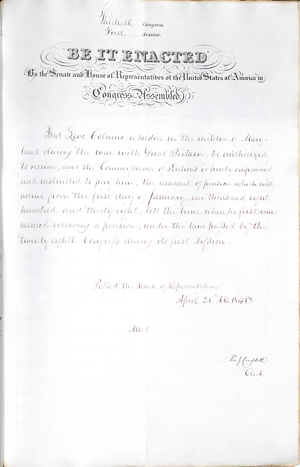 Thirtieth Congress,
First Session.
BE IT ENACTED
(By the Senate and House of Representatives of the United States of America in
Congress Assembled)
That Levi Colmus, a soldier in the militia of Mary-
land during the war with Great Britain, be authorized
to receive, and the Commissioner of Pensions is hereby empowered
and instructed to pay him, the amount of pension which will
accrue from the first day of January, one thousand eight
hundred and thirty eight, till the time when he first com-
menced receiving a pension, under the law passed by the
twenty eighth Congress during its first session.
Passed the House of Representatives
April 28 AD 1848
Attest
Th: J Campbell
Clerk